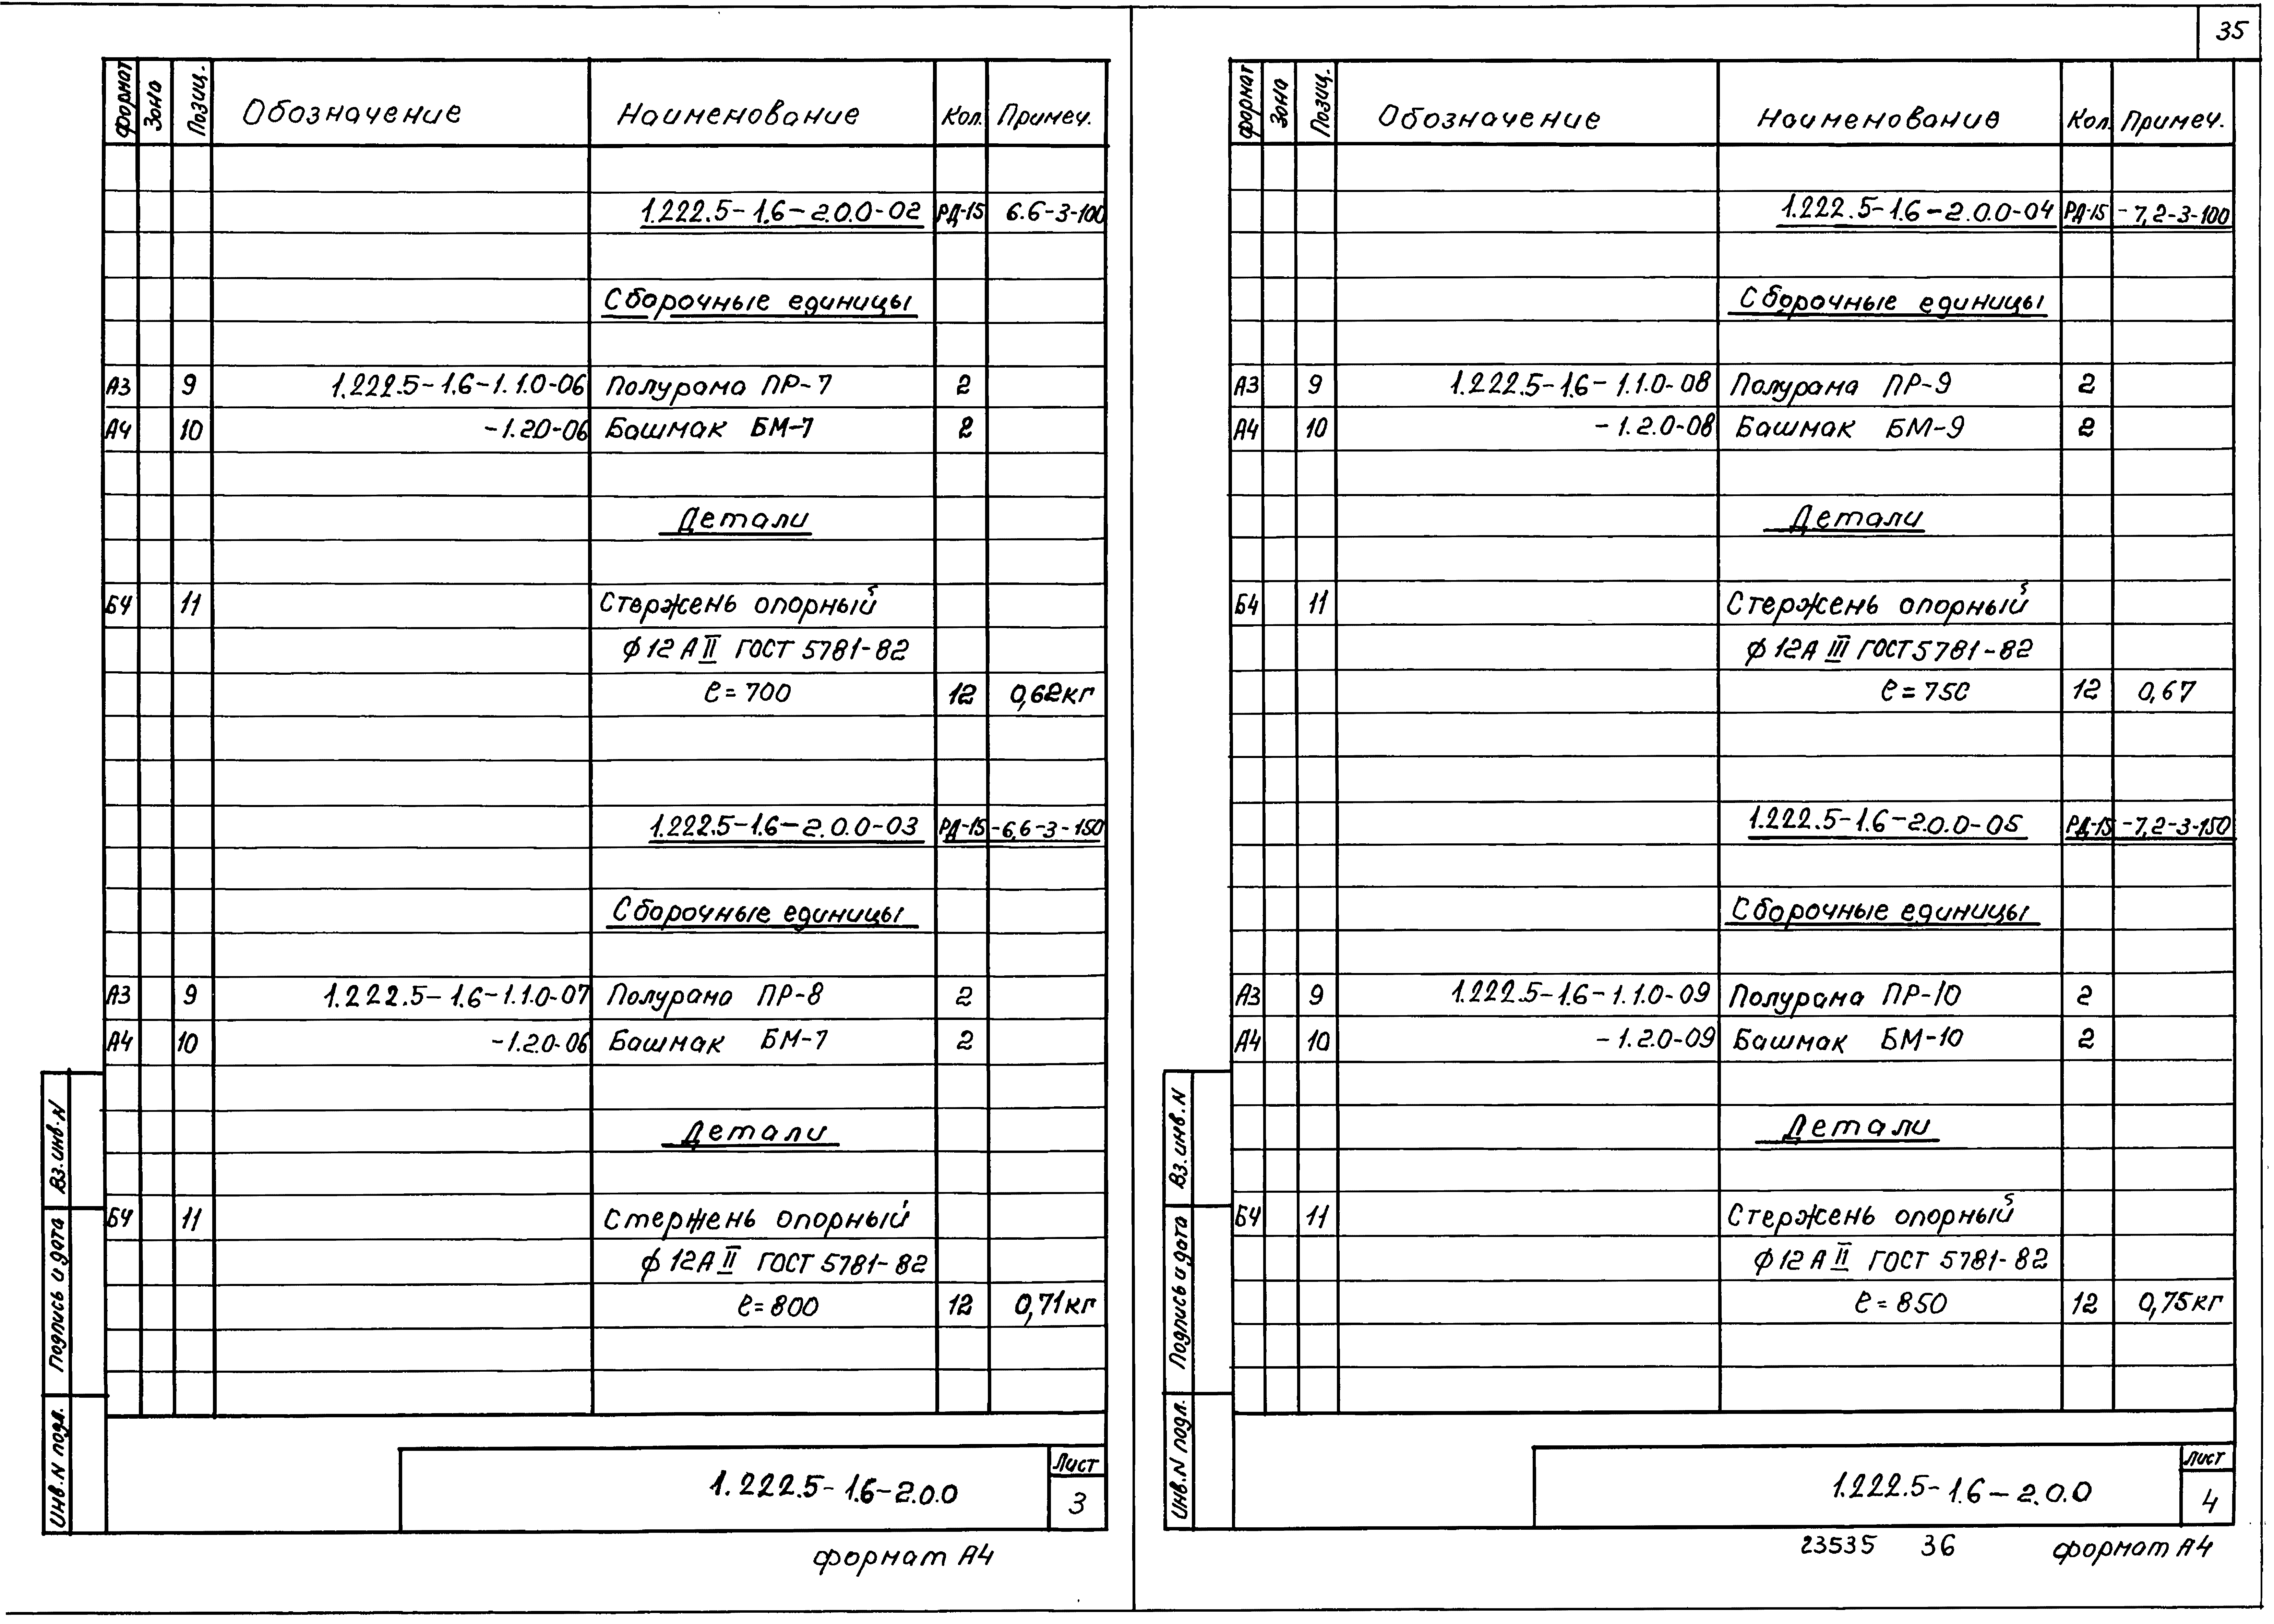 35
формат Зона Позиц. Обозначение Наименование Кол. Примеч.
1.222.5-1.6-2.0.0-02 РД-15 6.6-3-100
Сборочные единицы
А3 9 1.222.5-1.6-1.1.0-06 Полурама ПР-7 2
А4 10 -1.2.0-06 Башмак БМ-7 2
Детали
Б4 11 Стержень опорный
ф12 А II ГОСТ 5781-82
ℓ=700 12 0,62кг
1.222.5-1.6-2.0.0-03 РД-15-6,6-3-150
Сборочные единицы
А3 9 1.222.5-1.6-1.1.0-07 Полурама ПР-8 2
А4 10 -1.2.0-06 Башмак БМ-7 2
Детали
Б4 11 Стержень опорный
ф12А II ГОСТ 5781-82
ℓ=800 12 0,71кг
Вз.инв.N
Подпись и дата
Инв.N подл.
1.222.5-1.6-2.0.0
Лист
3
формат А4
формат Зона Позиц. Обозначение Наименование Кол. Примеч.
1.222.5-1.6-2.0.0-04 РД-15-7,2-3-100
Сборочные единицы
А3 9 1.222.5-1.6-1.1.0-08 Полурама ПР-9 2
А4 10 -1.2.0-08 Башмак БМ-9 2
Детали
Б4 11 Стержень опорный
ф12А III ГОСТ 5781-82
ℓ=750 12 0,67
1.222.5-1.6-2.0.0-05 РД-15-7,2-3-150
Сборочные единицы
А3 9 1.222.5-1.6-1.1.0-09 Полурама ПР-10 2
А4 10 -1.2.0-09 Башмак БМ-10 2
Детали
Б4 11 Стержень опорный
ф12 А II ГОСТ 5781-82
ℓ=850 12 0,75кг
Вз.инв.N
Подпись и дата
Инв.N подл.
1.222.5-1.6-2.0.0
Лист
4
23535 36 формат А4